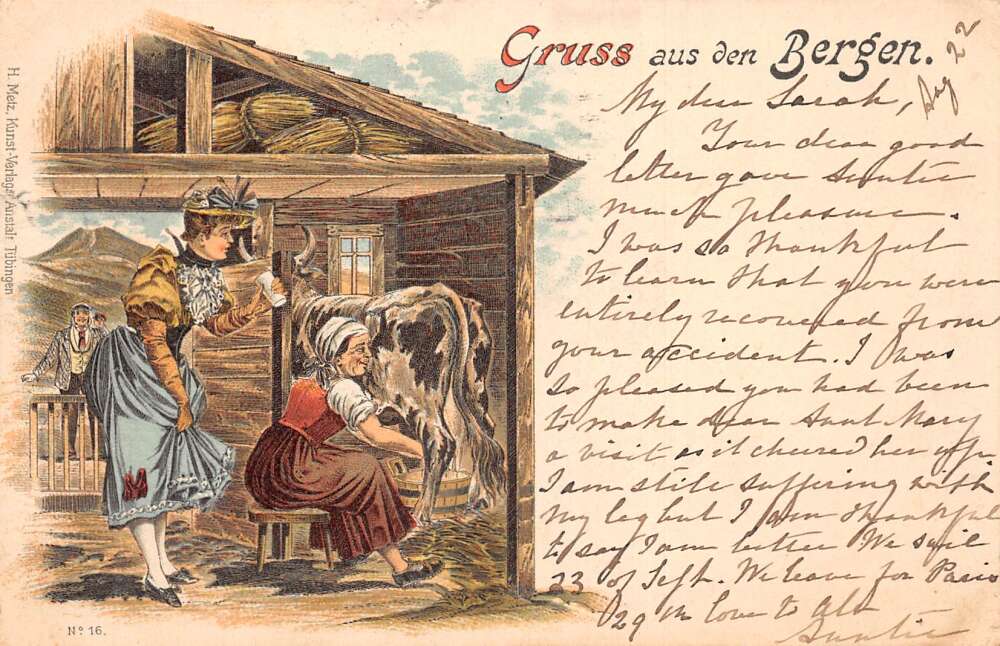 Gruss aus den Bergen.
Aug 22
My dear Sarah,
Your dear good
letter gave Auntie
much pleasure.
I was so thankful
to learn that you were
entirely recovered from
your accident. I was
so pleased you had been
to make dear Aunt Mary
a visit as it cheered her up.
I am still suffering with
my leg but I am thankful
to say I am better We sail
23 of Sept. We leave for Paris
29th love to all
Auntie
H. Metz, Kunst-Verlags-Anstalt Tübingen
No 16.